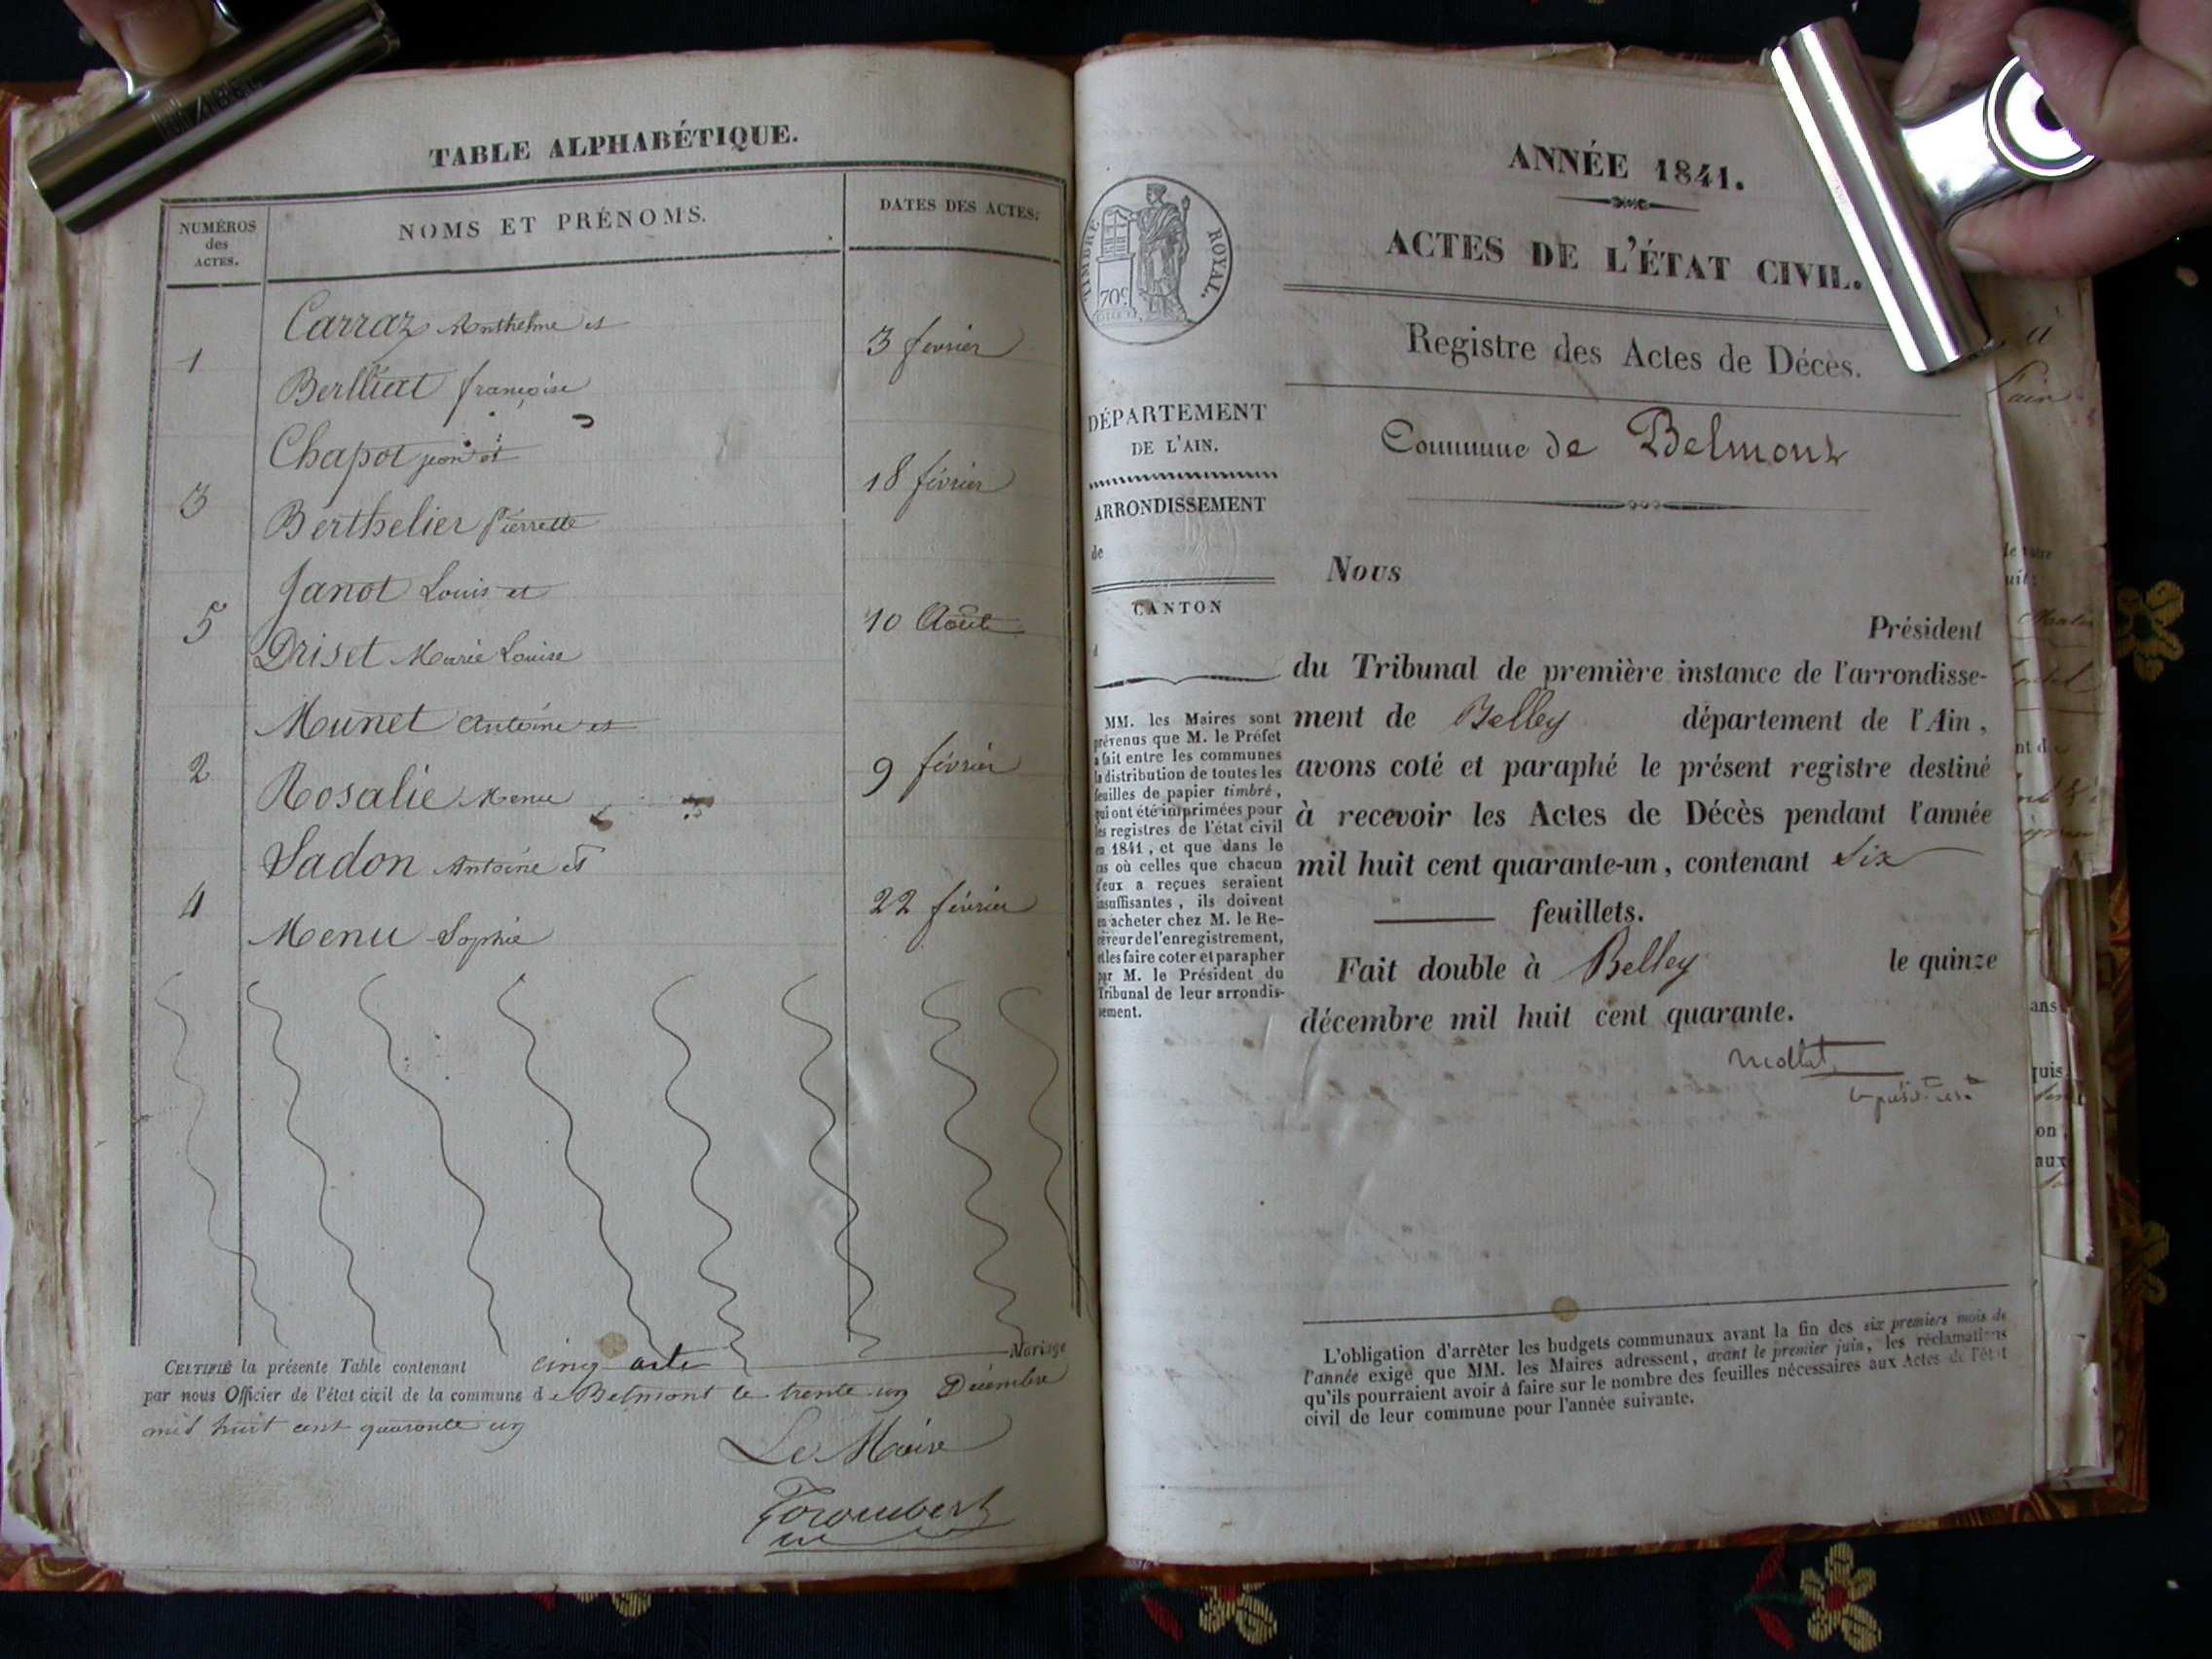 TABLE ALPHABÉTIQUE.
NUMÉROS
des
ACTES.
NOMS ET PRÉNOMS.
DATES DES ACTES.
Carraz Anthelme et
1
3 février
Berlliat françoise
Chapot jean et
3
18 février
Berthelier Pierrette
Janot Louis et
5
10 Août
Driset Marie Louise
Munet Antoine et
2
9 février
Rosalie Menu
Sadon Antoine et
4
22 février
Menu Sophie
CERTIFIÉ la présente Table contenant cinq acte Mariage
par nous Officier de l'état civil de la commune de Belmont le trente un Décembre
mil huit cent quaronte un
Le Maire
ANNÉE 1841.
ACTES DE L'ÉTAT CIVIL.
Registre des Actes de Décès.
Commune de Belmont
TIMBRE ROYAL.
70c
DÉPARTEMENT
DE L'AIN.
ARRONDISSEMENT
de
CANTON
d
MM. les Maires sont
prévenus que M. le Préfet
a fait entre les communes
la distribution de toutes les
feuilles de papier timbré,
qui ont été imprimées pour
les registres de l'état civil
en 1841, et que dans le
cas où celles que chacun
d'eux a reçues seraient
insuffisantes, ils doivent
en acheter chez M. le Re-
ceveur de l'enregistrement,
et les faire coter et parapher
par M. le Président du
Tribunal de leur arrondis-
sement.
Nous
Président
du Tribunal de première instance de l'arrondisse-
ment de Belley département de l'Ain,
avons coté et paraphé le présent registre destiné
à recevoir les Actes de Décès pendant l'année
mil huit cent quarante-un, contenant Six
feuillets.
Fait double à Belley le quinze
décembre mil huit cent quarante.
L'obligation d'arrêter les budgets communaux avant la fin des six premiers mois de
l'année exige que MM. les Maires adressent, avant le premier juin, les réclamations
qu'ils pourraient avoir à faire sur le nombre des feuilles nécessaires aux Actes de l'état
civil de leur commune pour l'année suivante.